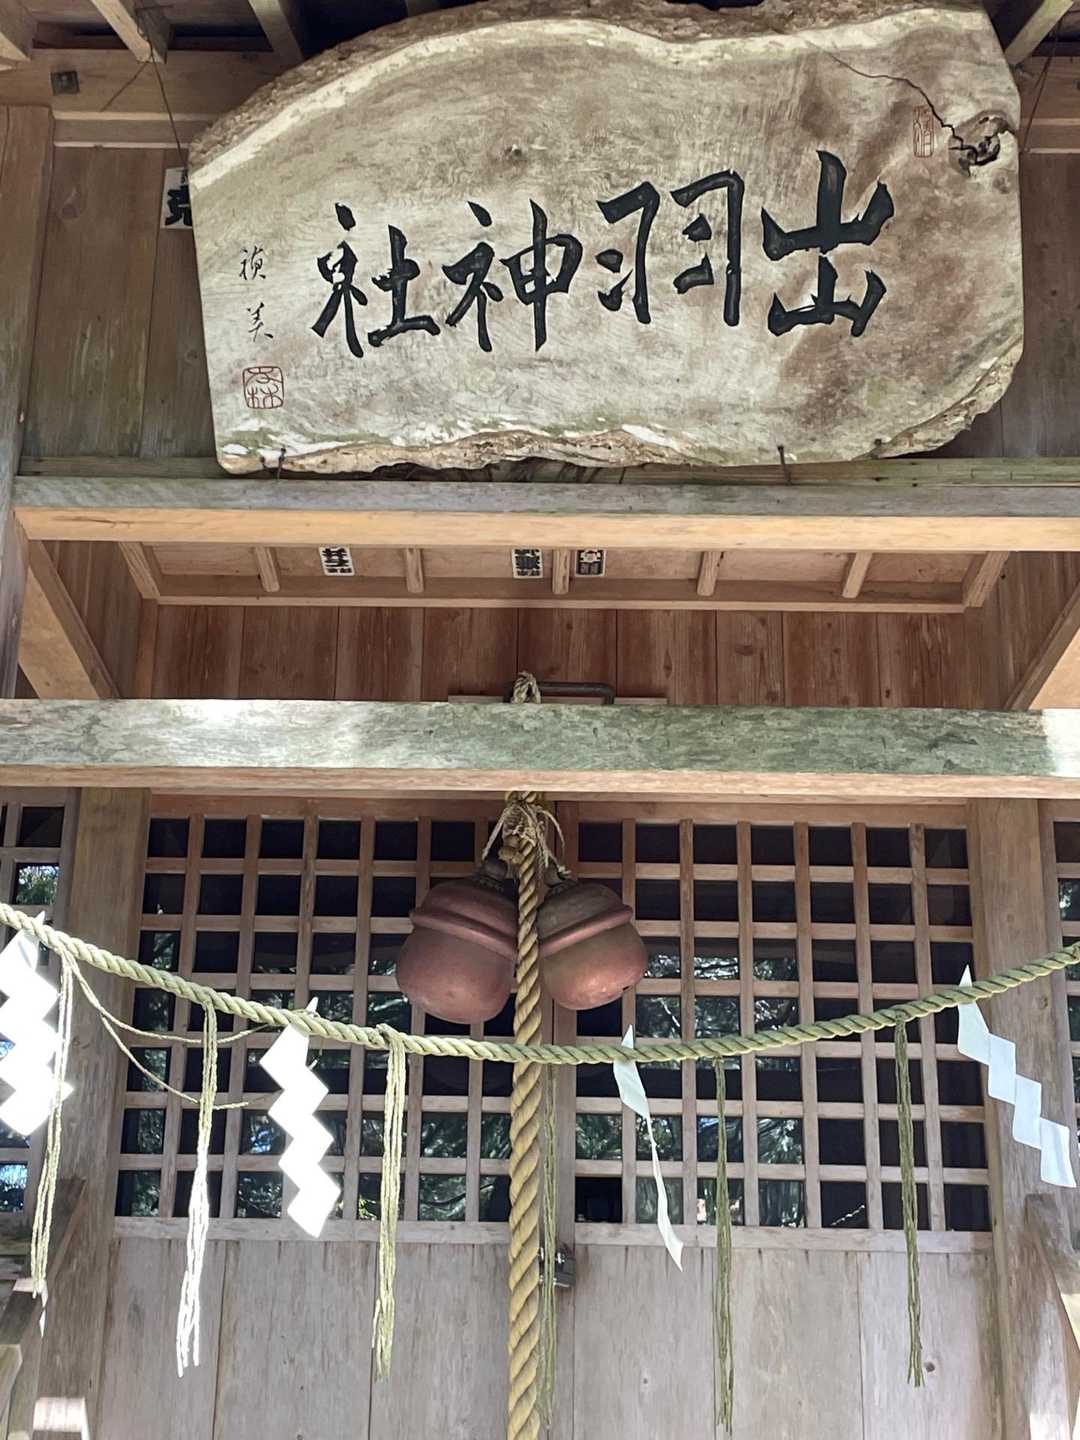 出羽神社
禎美